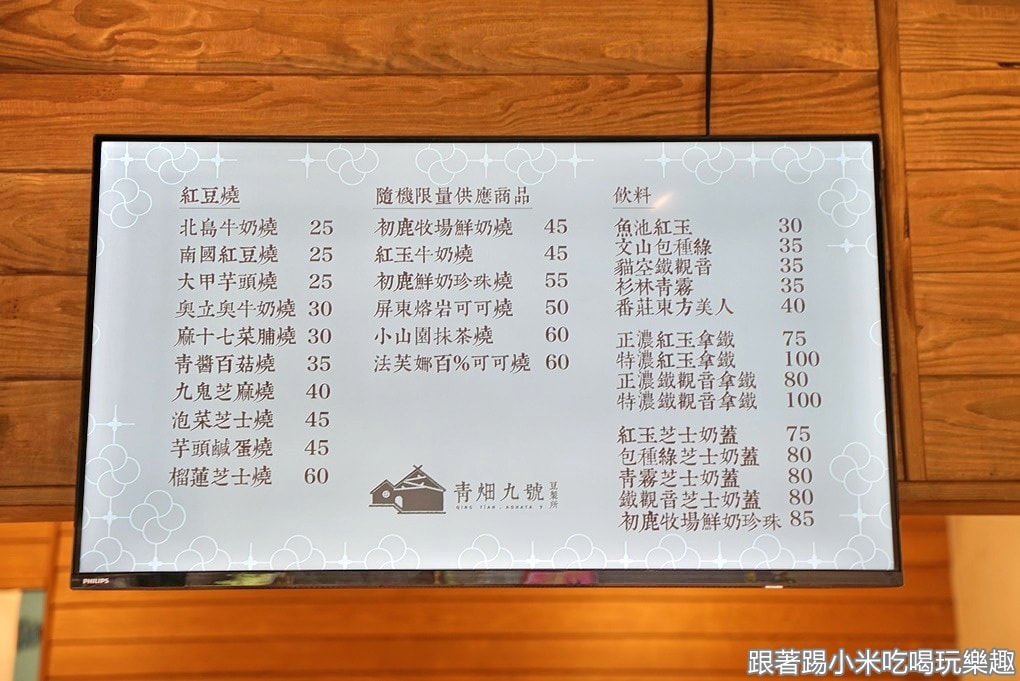 紅豆燒
北島牛奶燒 25
南國紅豆燒 25
大甲芋頭燒 25
奧立奧牛奶燒 30
麻十七菜脯燒 30
青醬百菇燒 35
九鬼芝麻燒 40
泡菜芝士燒 45
芋頭鹹蛋燒 45
榴蓮芝士燒 60
隨機限量供應商品
初鹿牧場鮮奶燒 45
紅玉牛奶燒 45
初鹿鮮奶珍珠燒 55
屏東熔岩可可燒 50
小山園抹茶燒 60
法芙娜百%可可燒 60
飲料
魚池紅玉 30
文山包種綠 35
貓空鐵觀音 35
杉林青霧 35
番莊東方美人 40
正濃紅玉拿鐵 75
特濃紅玉拿鐵 100
正濃鐵觀音拿鐵 80
特濃鐵觀音拿鐵 100
紅玉芝士奶蓋 75
包種綠芝士奶蓋 80
青霧芝士奶蓋 80
鐵觀音芝士奶蓋 80
初鹿牧場鮮奶珍珠 85
青畑九號 豆製所
PHILIPS
跟著踢小米吃喝玩樂趣